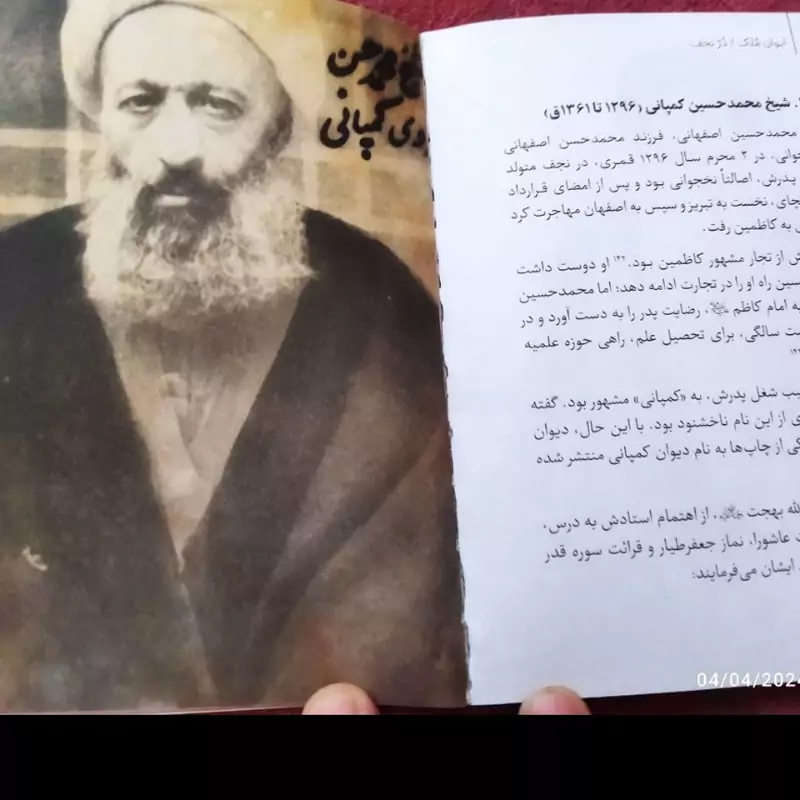 محمد حسن
کمپانی
ایوان مُلک / دُرّ نجف
شیخ محمدحسین کمپانی (۱۲۹۶ تا ۱۳۶۱ق)
محمدحسین اصفهانی، فرزند محمدحسن اصفهانی
در ۲ محرم سال ۱۲۹۶ قمری، در نجف متولد
پدرش، اصالتاً نخجوانی بود و پس از امضای قرارداد
نخست به تبریز و سپس به اصفهان مهاجرت کرد
به کاظمین رفت.
از تجار مشهور کاظمین بود.۱۴۲ او دوست داشت
راه او را در تجارت ادامه دهد؛ اما محمدحسین
به امام کاظم، رضایت پدر را به دست آورد و در
سالگی، برای تحصیل علم، راهی حوزه علمیه
شغل پدرش، به «کمپانی» مشهور بود. گفته
از این نام ناخشنود بود. با این حال، دیوان
از چاپ‌ها به نام دیوان کمپانی منتشر شده
بهجت، از اهتمام استادش به درس،
عاشورا، نماز جعفرطیار و قرائت سوره قدر
ایشان می‌فرمایند:
04/04/2024